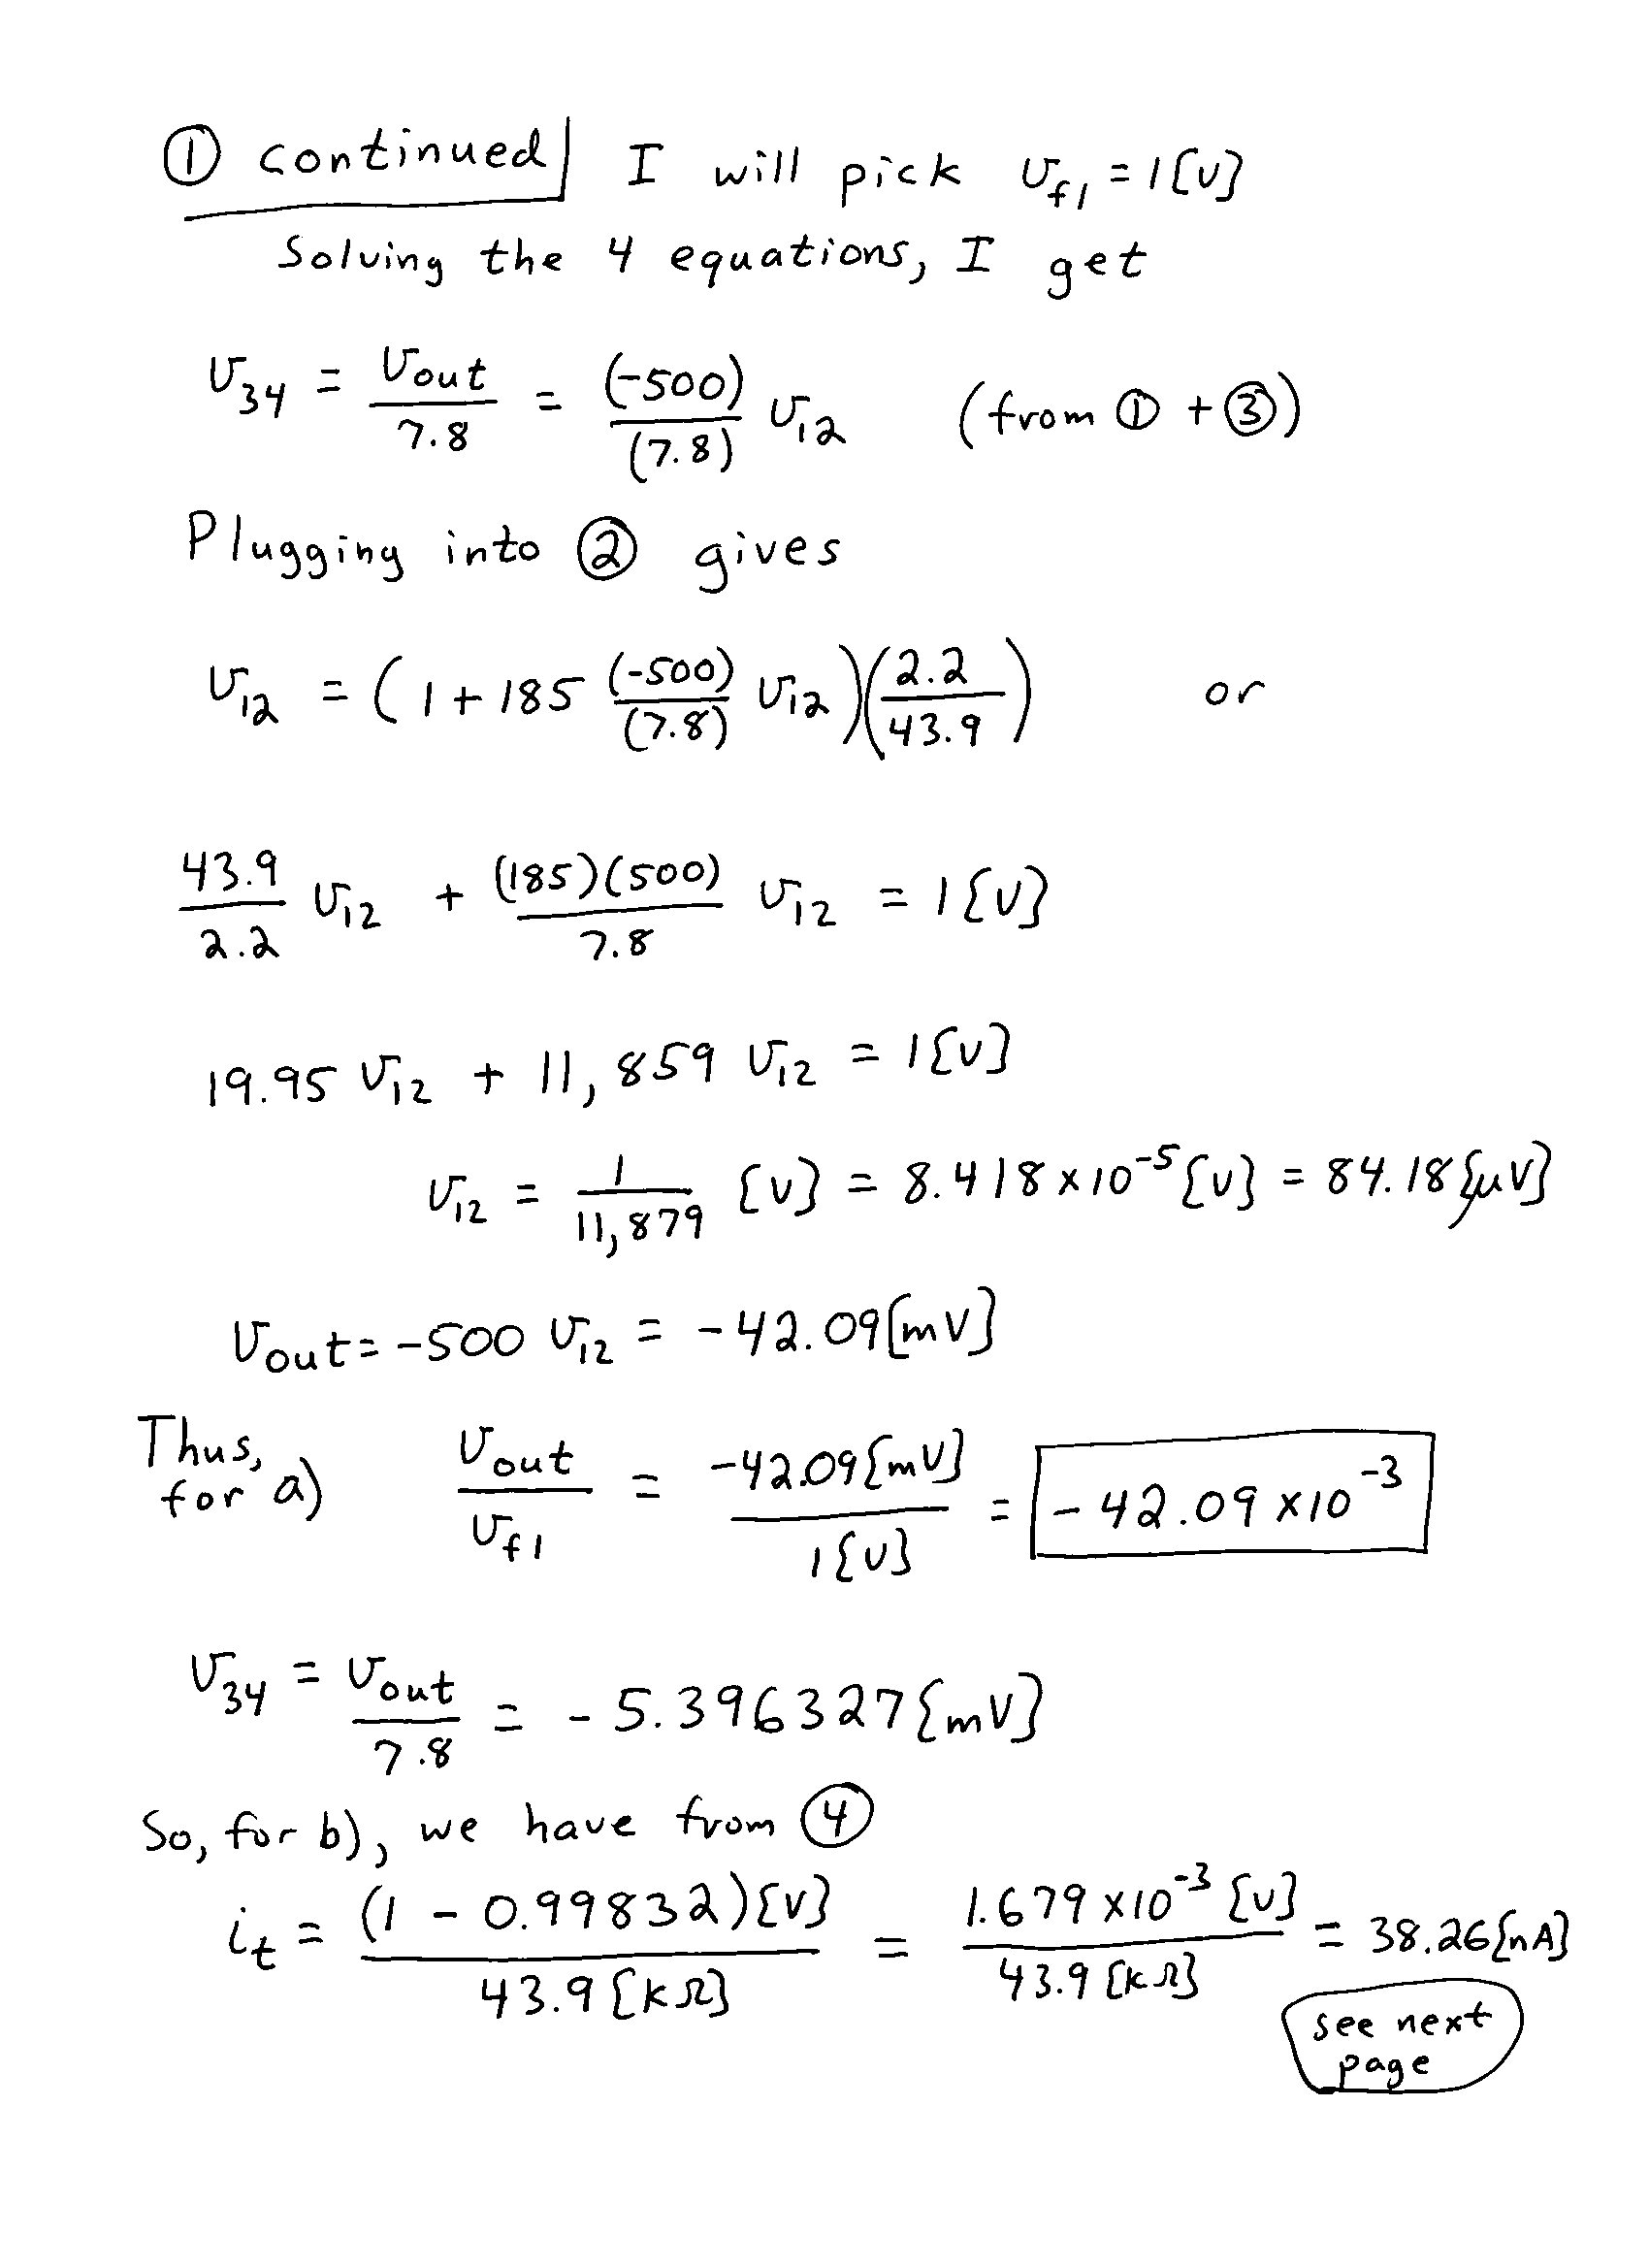 ① continued I will pick v_f1 = 1[V]
Solving the 4 equations, I get
v_34 = v_out / 7.8 = (-500) / (7.8) v_12 (from ① + ③)
Plugging into ② gives
v_12 = (1 + 185 (-500) / (7.8) v_12)(2.2 / 43.9) or
43.9 / 2.2 v_12 + (185)(500) / 7.8 v_12 = 1[V]
19.95 v_12 + 11,859 v_12 = 1[V]
v_12 = 1 / 11,879 [V] = 8.418 × 10^-5 [V] = 84.18[μV]
v_out = -500 v_12 = -42.09[mV]
Thus, for a) v_out / v_f1 = -42.09[mV] / 1[V] = -42.09 × 10^-3
v_34 = v_out / 7.8 = -5.396327[mV]
So, for b), we have from ④
i_t = (1 - 0.99832)[V] / 43.9[kΩ] = 1.679 × 10^-3 [V] / 43.9[kΩ] = 38.26[nA]
see next
page